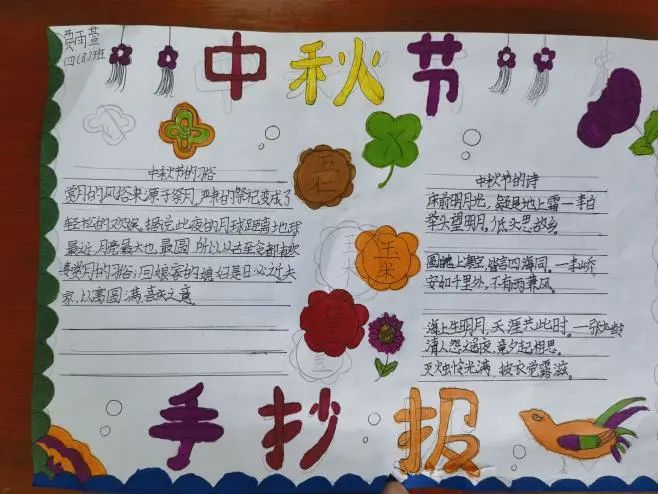 贾雨萱
四(8)班
中秋节
中秋节的习俗
赏月的风俗来源于祭月,严肃的祭祀变成了
轻松的欢娱。据说此夜的月球距离地球
最近,月亮最大也最圆,所以从古至今都有欢
赏月的习俗;回娘家的媳妇是日必返夫
家,以寓圆满、喜庆之意。
五仁
玉米
红豆
中秋节的诗
床前明月光,疑是地上霜 一李白
举头望明月。低头思故乡。
圆魄上寒空,皆言四海同。一李峤
安知千里外,不有雨兼风。
海上生明月,天涯共此时。一张九龄
清人怨遥夜,竟夕起相思。
灭烛怜光满,披衣觉露滋。
手抄报